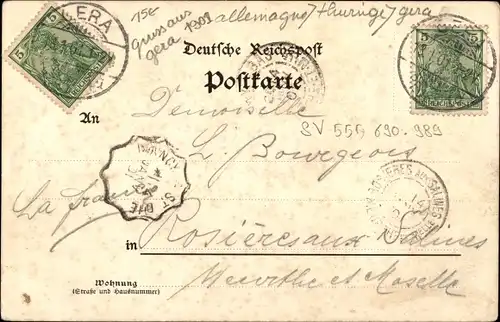 GERA
15€
gruss aus
gera 1303
allemagne / thuringe / gera
5
5
Deutsche Reichspost
Postkarte
An
Demoiselle
SV 555 690.989
L. Bourgeois
NANCY
ROSIERES AUX SALINES
La france
in
Rosières aux Salines
Meurthe et Moselle
Wohnung
(Straße und Hausnummer)